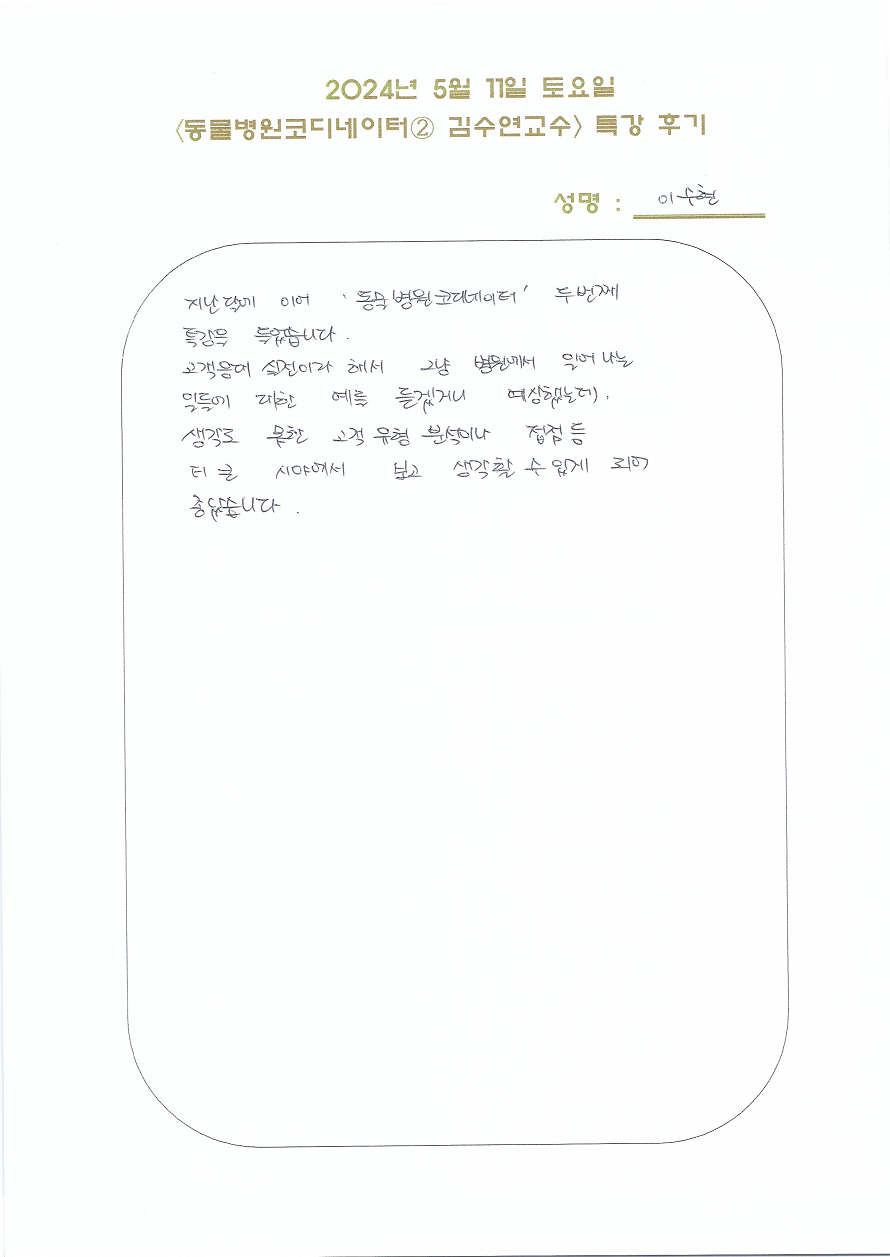 2024년 5월 11일 토요일
<동물병원코디네이터② 김수연교수> 특강 후기
성명 : 이수현
지난 달에 이어 '동물병원코디네이터' 두번째
특강을 들었습니다.
고객응대 실전이라 해서 그냥 병원에서 일어나는
일들에 대한 예를 들겠거니 예상했는데,
생각도 못한 고객 유형 분석이나 접점 등
더 큰 시야에서 보고 생각할 수 있게 되어
좋았습니다.